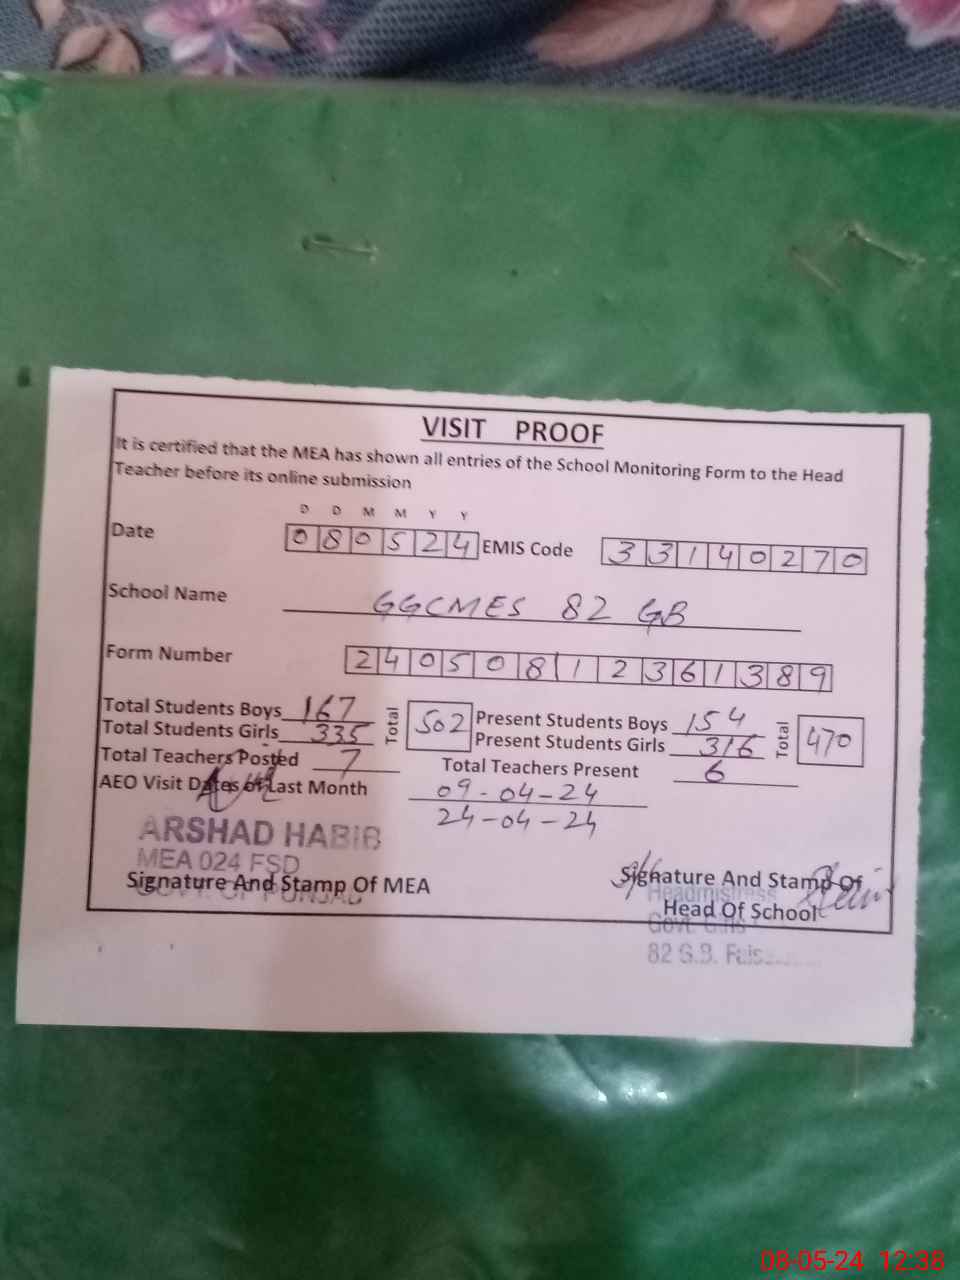 VISIT PROOF
It is certified that the MEA has shown all entries of the School Monitoring Form to the Head
Teacher before its online submission
D D M M Y Y
Date 080524 EMIS Code 33140270
School Name GGCMES 82 GB
Form Number 24050812361389
Total Students Boys 167 Total 502 Present Students Boys 154 Total 470
Total Students Girls 335 Present Students Girls 316
Total Teachers Posted 7 Total Teachers Present 6
AEO Visit Dates of Last Month 09-04-24
24-04-24
ARSHAD HABIB
MEA 024 FSD
Signature And Stamp Of MEA
GOVT. OF PUNJAB
Signature And Stamp Of
Headmistress
Head Of School
Govt.
82 G.B.
08-05-24 12:38